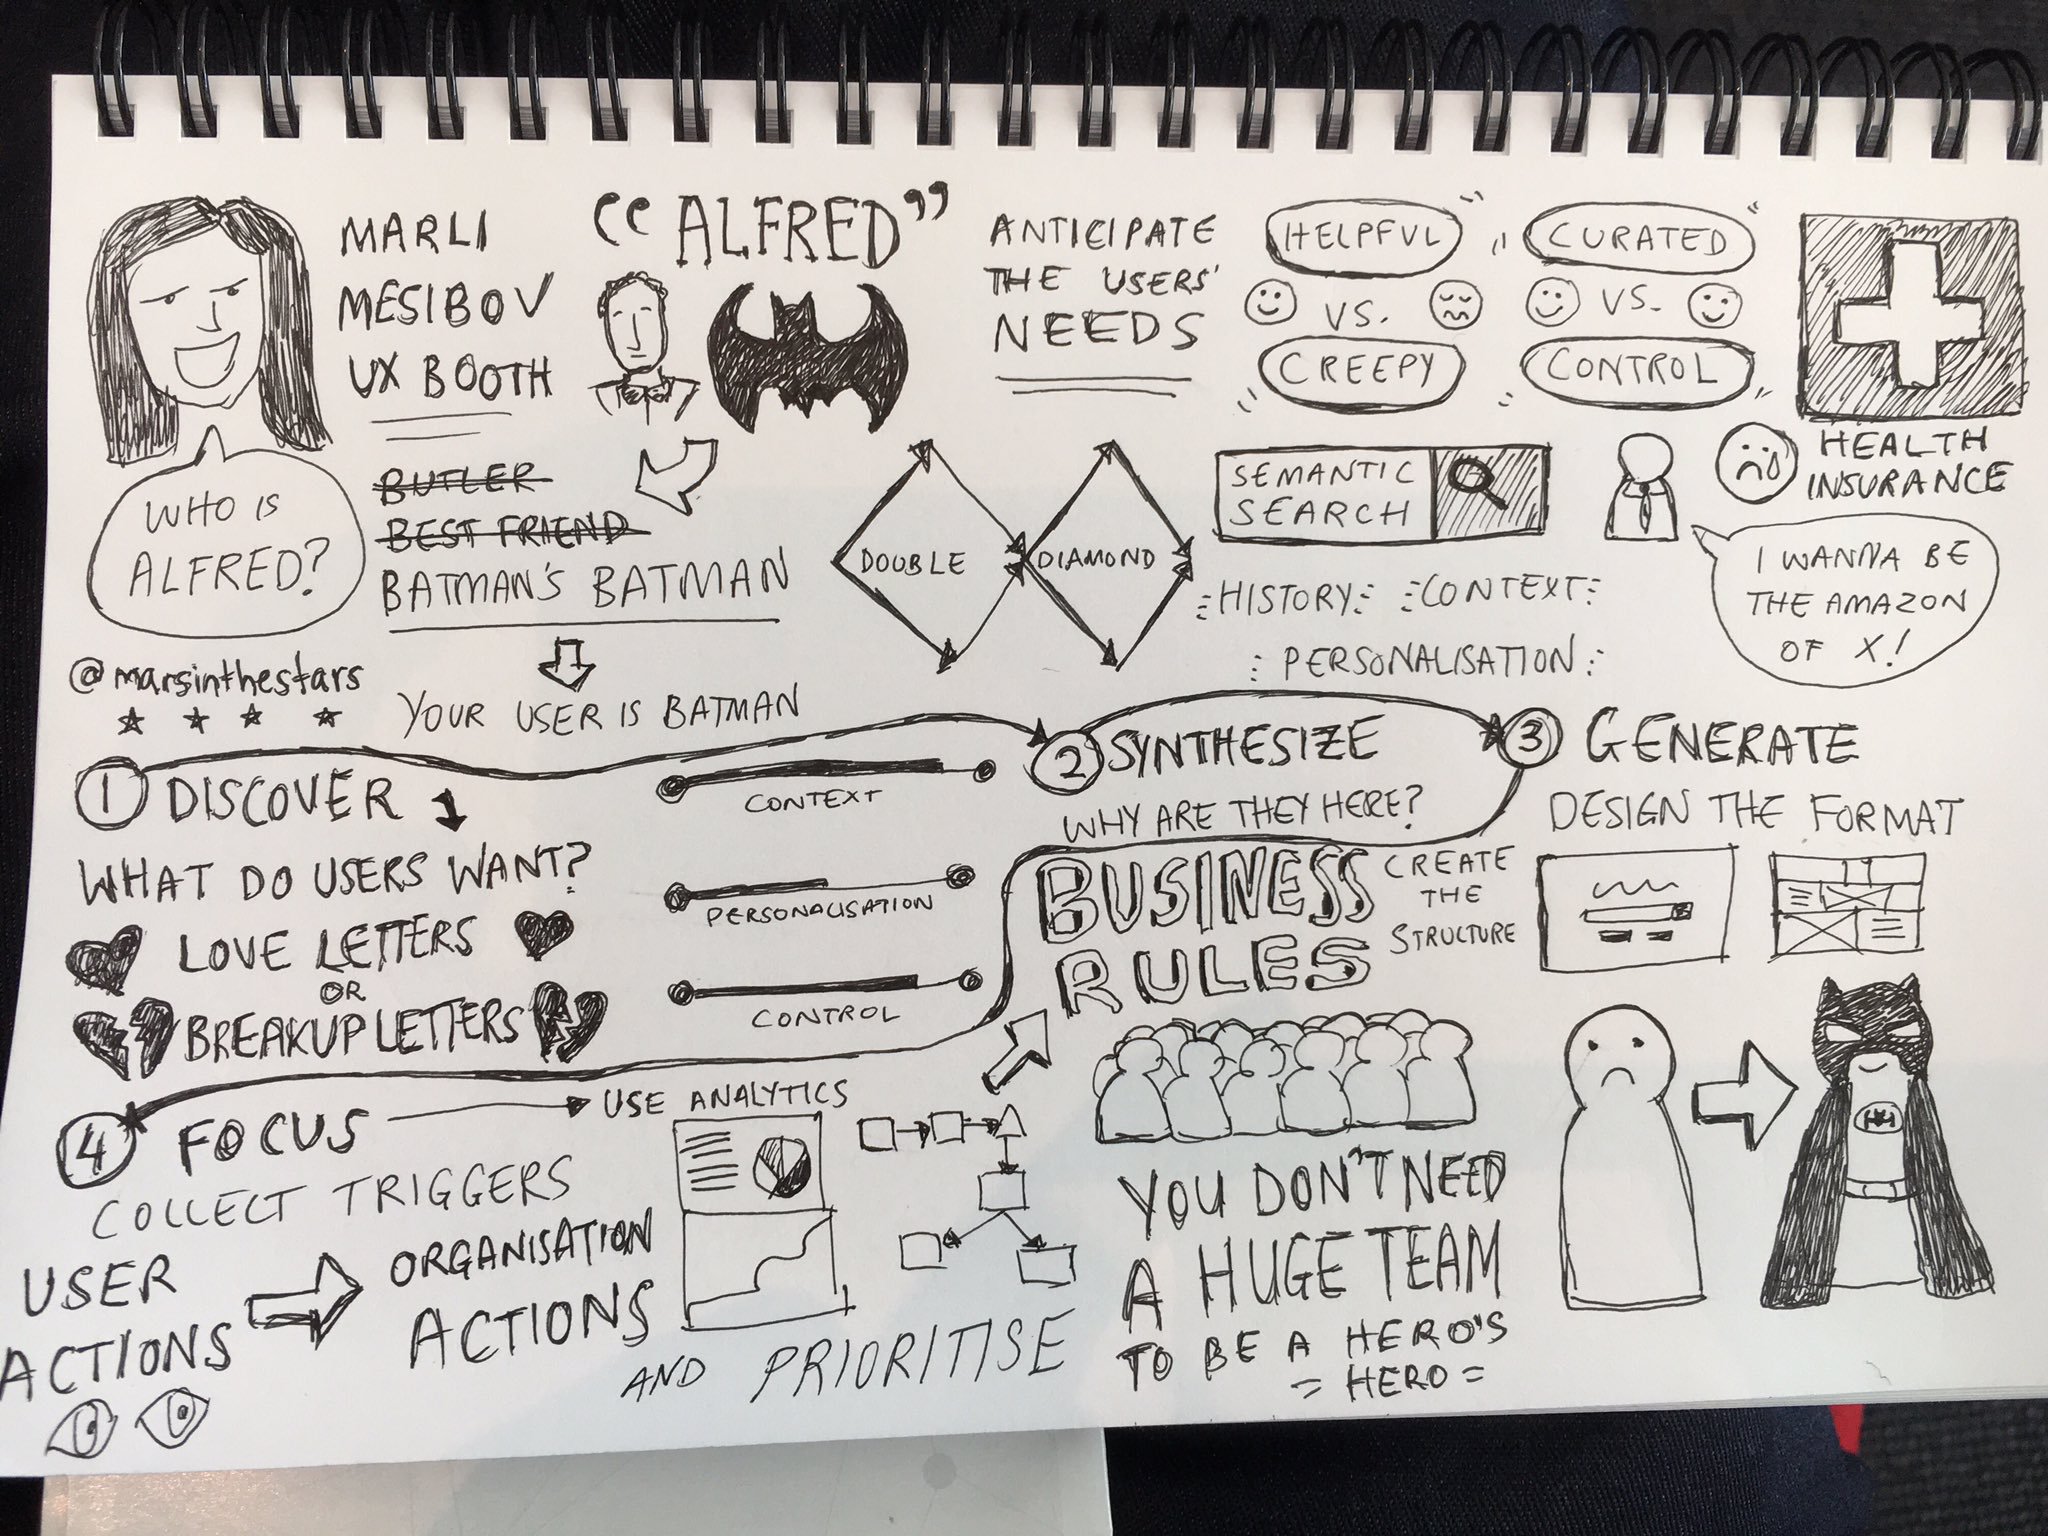 MARLI
MESIBOV
UX BOOTH
"ALFRED"
WHO IS
ALFRED?
@marsinthestars
BUTLER
BEST FRIEND
BATMAN'S BATMAN
YOUR USER IS BATMAN
ANTICIPATE
THE USERS'
NEEDS
HELPFUL
VS.
CREEPY
CURATED
VS.
CONTROL
DOUBLE
DIAMOND
SEMANTIC
SEARCH
HISTORY
CONTEXT
PERSONALISATION
HEALTH
INSURANCE
I WANNA BE
THE AMAZON
OF X!
1 DISCOVER
WHAT DO USERS WANT?
LOVE LETTERS
OR
BREAKUP LETTERS
CONTEXT
PERSONALISATION
CONTROL
2 SYNTHESIZE
WHY ARE THEY HERE?
BUSINESS
RULES
CREATE
THE
STRUCTURE
3 GENERATE
DESIGN THE FORMAT
4 FOCUS
USE ANALYTICS
COLLECT TRIGGERS
USER
ACTIONS
ORGANISATION
ACTIONS
AND PRIORITISE
YOU DON'T NEED
A HUGE TEAM
TO BE A HERO'S
= HERO =